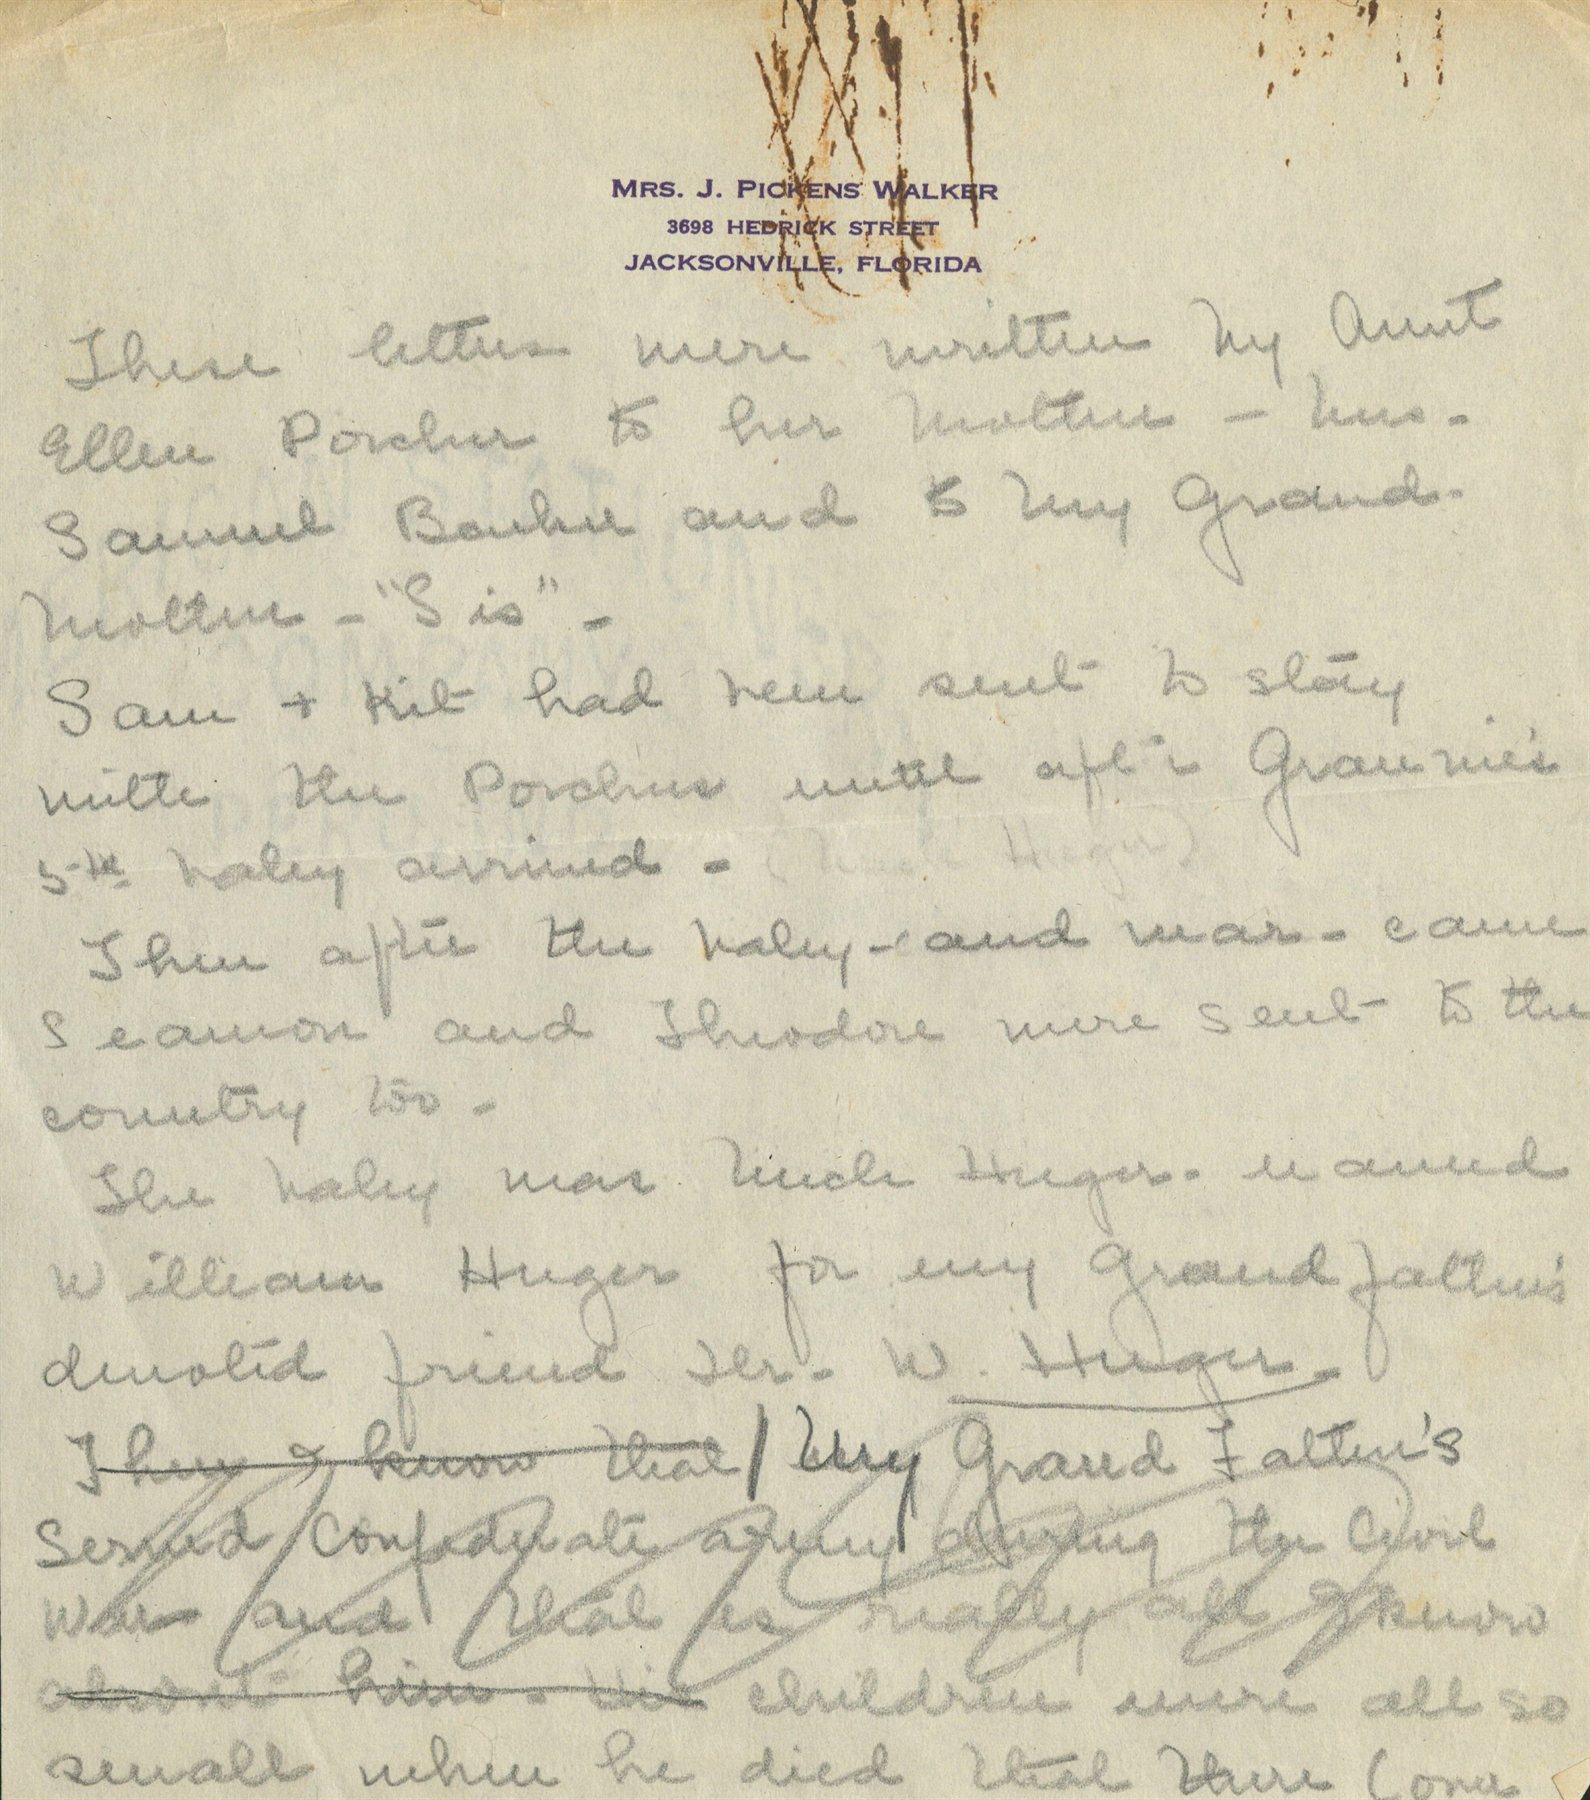 MRS. J. PICKENS WALKER
3698 HEDRICK STREET
JACKSONVILLE, FLORIDA
These letters were written by Aunt
Ellen Porcher to her Mother – Mrs.
Samuel Barker and to my Grand-
mother – "Sis" –
Sam + Kit had been sent to stay
with the Porchers until after Grannie's
5th baby arrived – (Uncle Huger)
Then after the baby – and war – came
Seaman and Theodore were sent to the
country too –
The baby was Uncle Huger – named
William Huger for my Grandfather's
devoted friend Dr. W. Huger.
Then I know that / My Grand Father's
served Confederate army during the Civil
War and that is really all I know
about him. His children were all so
small when he died that there (over